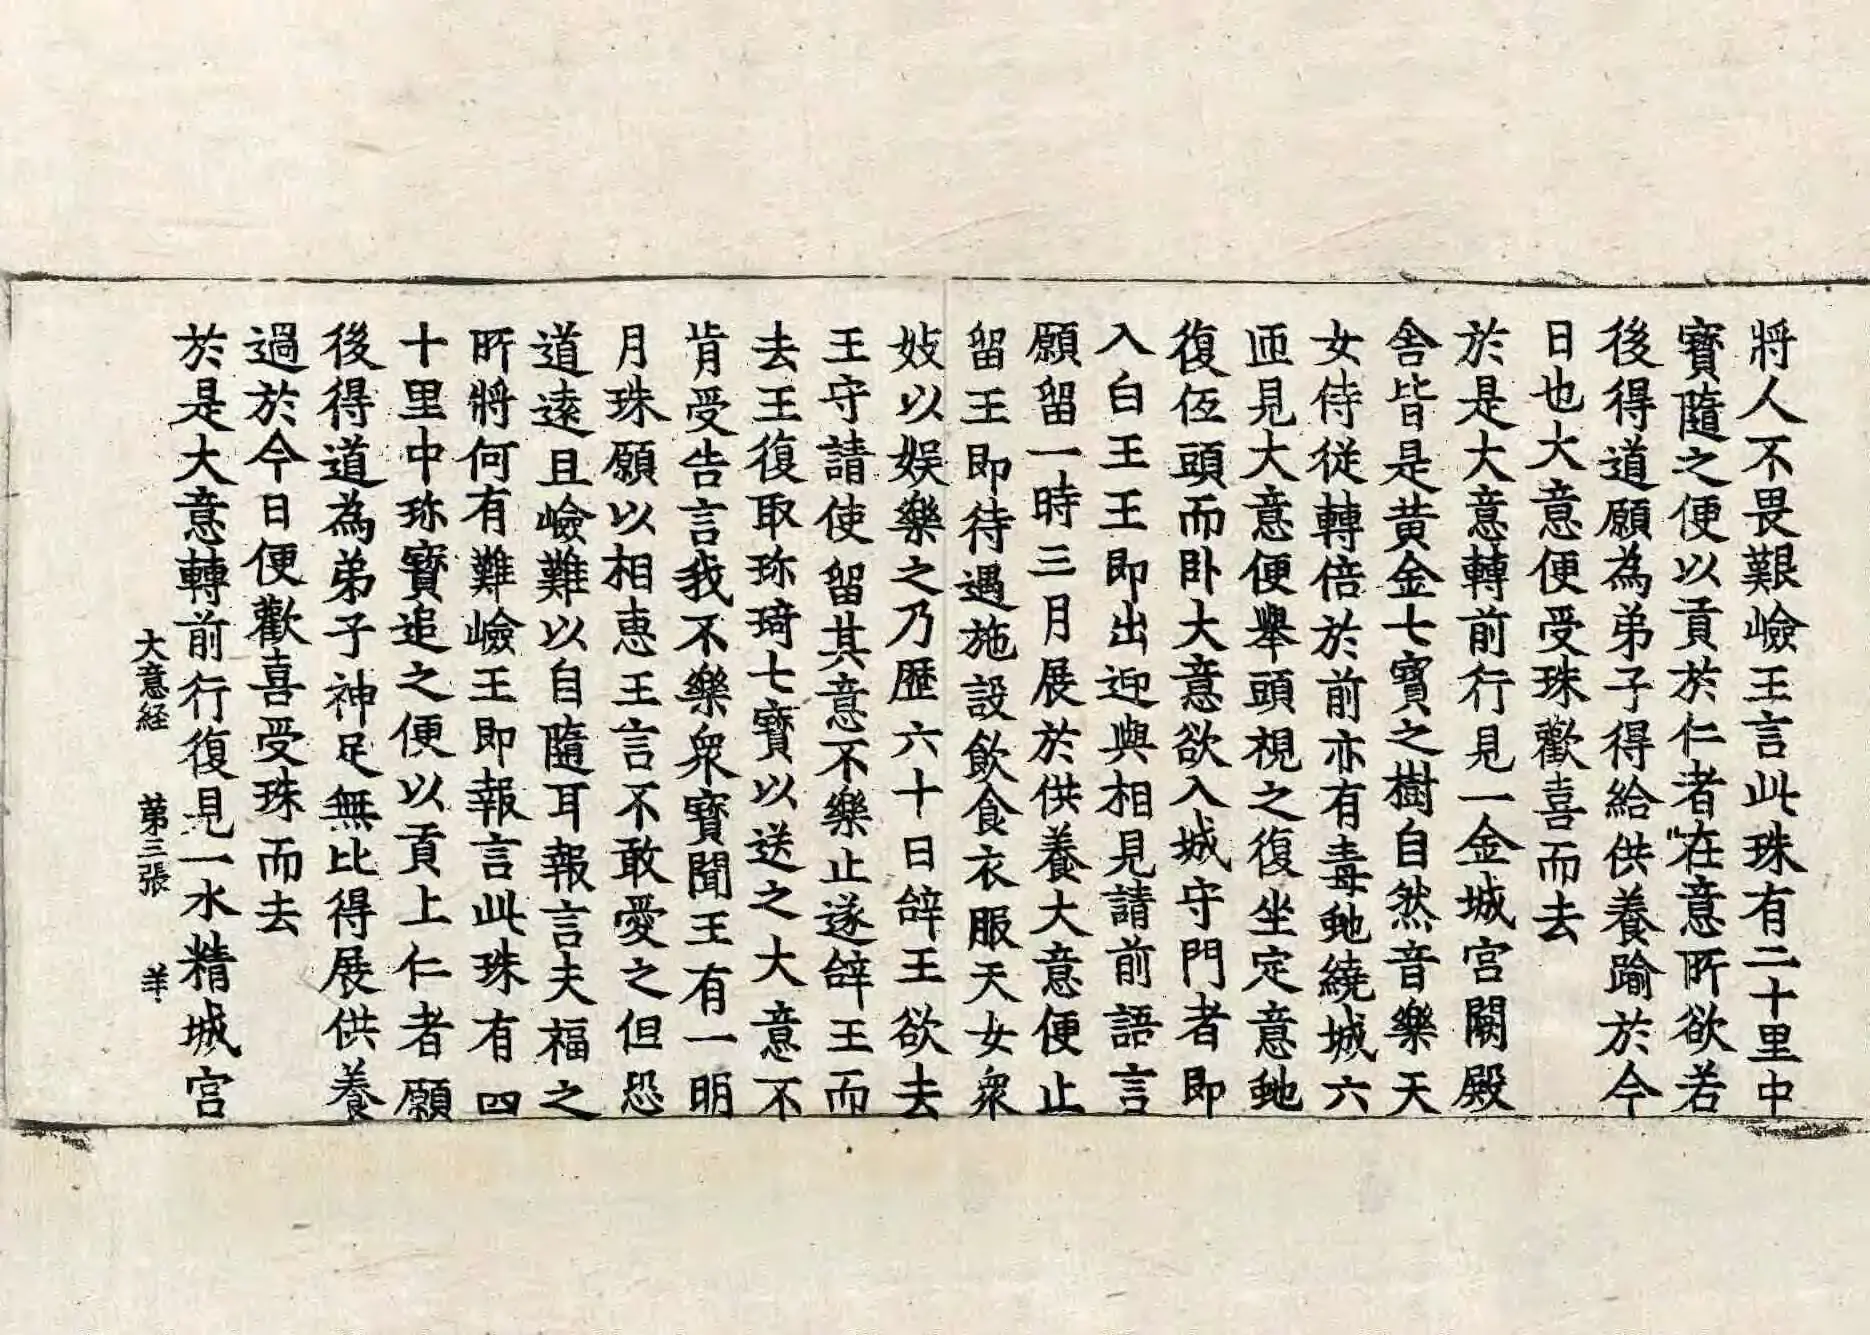 將人不畏艱嶮王言此珠有二十里中
寶隨之便以貢於仁者在意所欲若
後得道願為弟子得給供養踰於今
日也大意便受珠歡喜而去
於是大意轉前行見一金城宮闕殿
舎皆是黃金七寶之樹自然音樂天
女侍従轉倍於前亦有毒虵繞城六
匝見大意便舉頭視之復坐定意虵
復伍頭而卧大意欲入城守門者即
入白王王即出迎與相見請前語言
願留一時三月展於供養大意便止
留王即待遇施設飲食衣服天女衆
妓以娱樂之乃歷六十日辝王欲去
王守請使留其意不樂止遂辝王而
去王復取珎琦七寶以送之大意不
肯受告言我不樂衆寶聞王有一明
月珠願以相惠王言不敢愛之但恐
道逺且嶮難以自隨耳報言夫福之
所將何有難嶮王即報言此珠有四
十里中珎寶追之便以貢上仁者願
後得道為弟子神足無比得展供養
過於今日便歡喜受珠而去
於是大意轉前行復見一水精城宮
大意経 第三張 羊